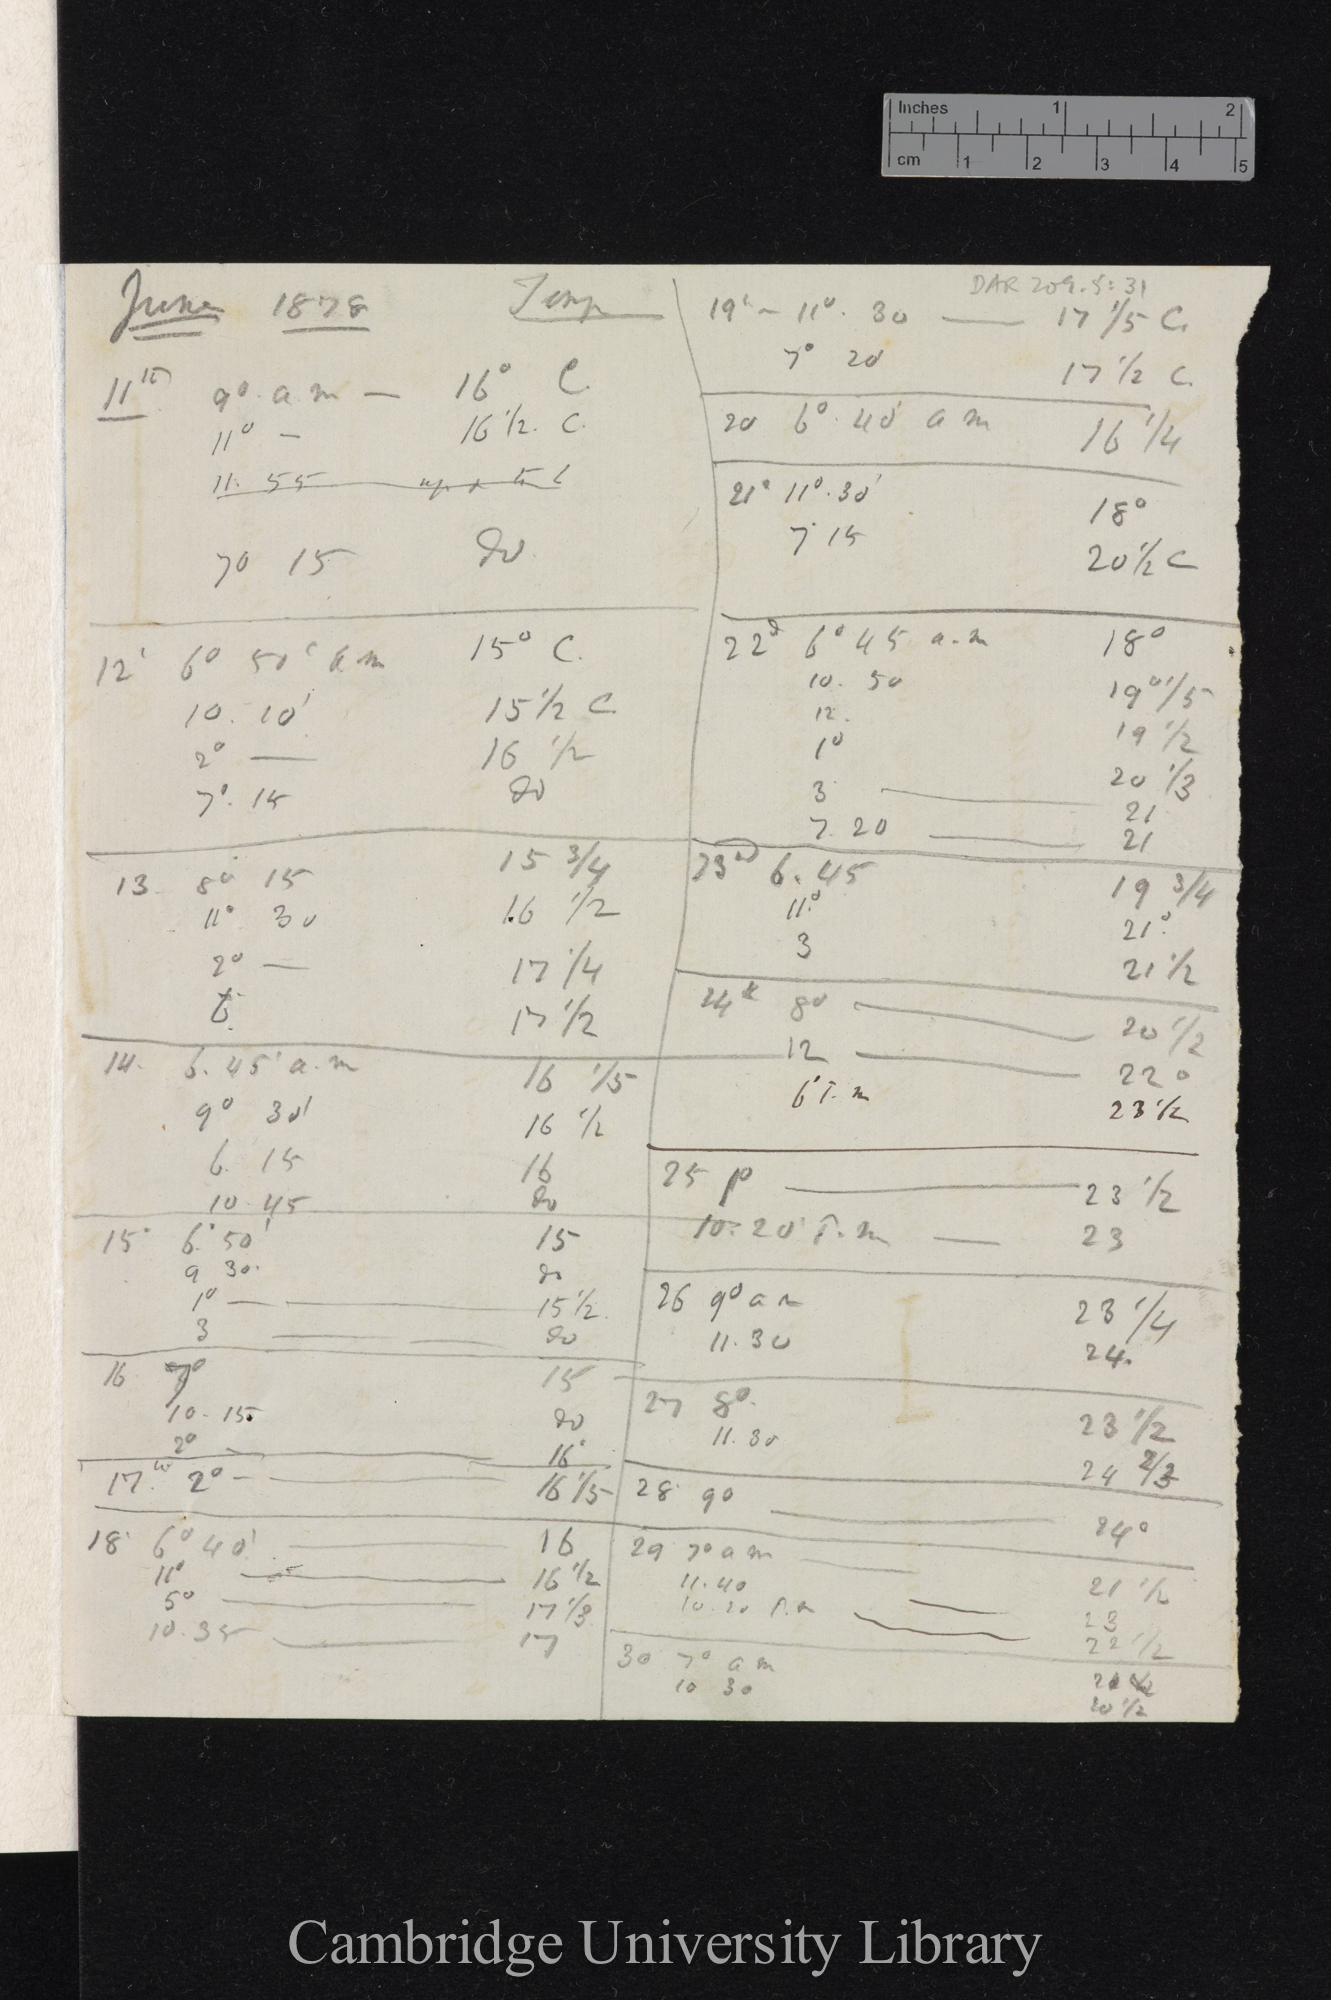 Inches 1 2
cm 1 2 3 4 5
DAR 209.5:31
June 1878 Temp
11th 9° a m — 16° C.
11° — 16 1/2. C.
11. 55
7° 15 do
12' 6° 50' a m 15° C.
10. 10' 15 1/2 C
2° — 16 1/2
7°. 15 do
13. 8° 15 15 3/4
11° 30 16 1/2
2° — 17 1/4
6. 17 1/2
14. 6. 45' a.m 16 1/5
9° 30' 16 1/2
6. 15 16
10. 45 do
15° 6.° 50' 15
9 30. do
1° — 15 1/2.
3 — do
16 7° 15
10. 15. do
2° 16°
17.th 2° — 16 1/5
18 6° 40' 16
11° — 16 1/2
5° — 17 1/3
10. 35 — 17
19' — 11°. 30 — 17 1/5 C.
7° 20 17 1/2 C.
20 6°. 40' a m 16 1/4
21° 11°. 30' 18°
7 15 20 1/2 C
22d 6° 45 a.m 18°
10. 50 19° 1/5
12. 19 1/2
1° 20 1/3
3 — 21
7. 20 — 21
23d 6. 45 19 3/4
11° 21°.
3 21 1/2
24th 8° — 20 1/2
12 — 22°
6° P.m 23 1/2
25 — 23 1/2
10. 20' P.m — 23
26 9° a m 23 1/4
11. 30 24.
27 8°. 23 1/2
11. 30 24 2/3
28 9° — 24°
29 7° a m — 21 1/2
11. 40 — 23
10. 20 P.m — 22 1/2
30 7° a m
10 30 20 1/2
Cambridge University Library